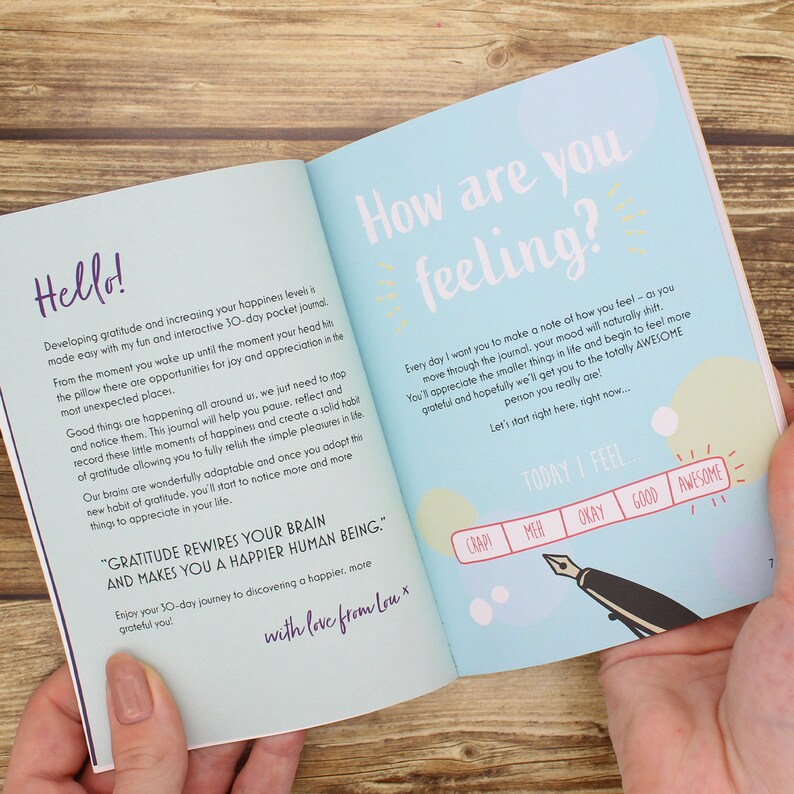 Hello!
Developing gratitude and increasing your happiness levels is
made easy with my fun and interactive 30-day pocket journal.
From the moment you wake up until the moment your head hits
the pillow there are opportunities for joy and appreciation in the
most unexpected places.
Good things are happening all around us, we just need to stop
and notice them. This journal will help you pause, reflect and
record these little moments of happiness and create a solid habit
of gratitude allowing you to fully relish the simple pleasures in life.
Our brains are wonderfully adaptable and once you adopt this
new habit of gratitude, you'll start to notice more and more
things to appreciate in your life.
"GRATITUDE REWIRES YOUR BRAIN
AND MAKES YOU A HAPPIER HUMAN BEING."
Enjoy your 30-day journey to discovering a happier, more
grateful you!
with love from Lou x
How are you
feeling?
Every day I want you to make a note of how you feel – as you
move through the journal, your mood will naturally shift.
You'll appreciate the smaller things in life and begin to feel more
grateful and hopefully we'll get you to the totally AWESOME
person you really are!
Let's start right here, right now...
TODAY I FEEL...
CRAP! MEH OKAY GOOD AWESOME
7